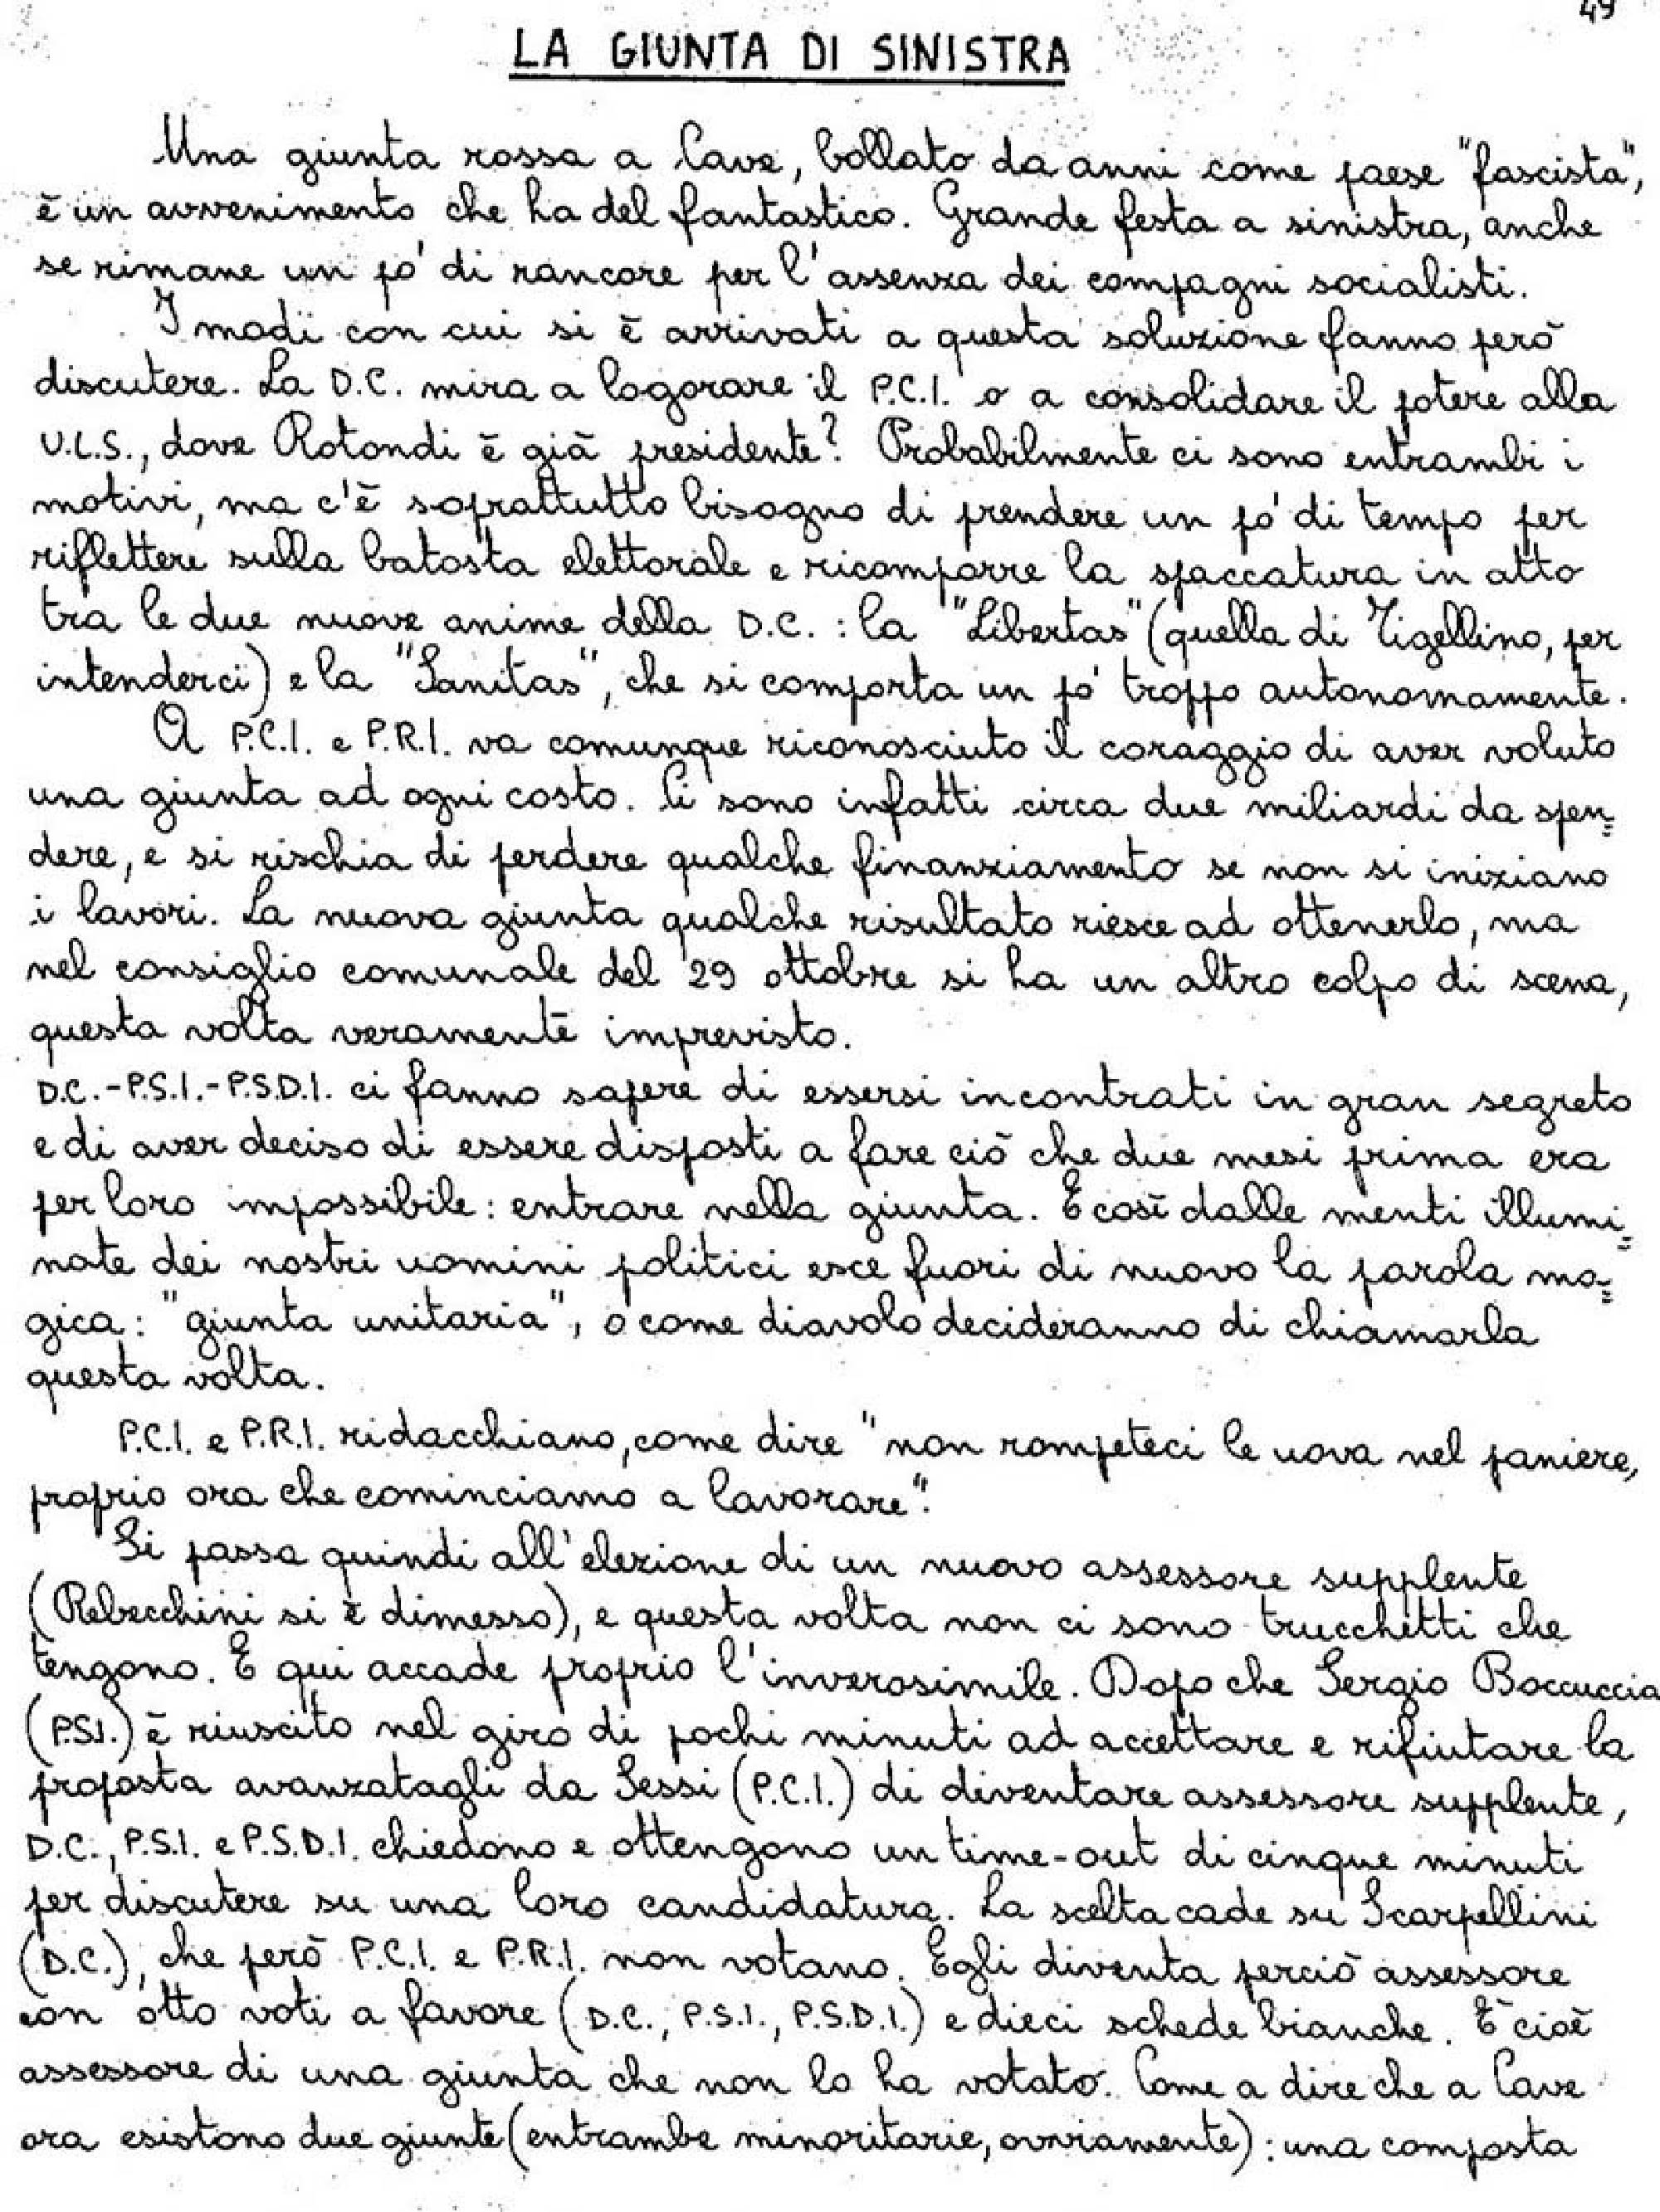 49
LA GIUNTA DI SINISTRA
Una giunta rossa a Cave, bollato da anni come paese "fascista",
è un avvenimento che ha del fantastico. Grande festa a sinistra, anche
se rimane un pò di rancore per l'assenza dei compagni socialisti.
I modi con cui si è arrivati a questa soluzione fanno però
discutere. La D.C. mira a logorare il P.C.I. o a consolidare il potere alla
U.L.S., dove Rotondi è già presidente? Probabilmente ci sono entrambi i
motivi, ma c'è soprattutto bisogno di prendere un pò di tempo per
riflettere sulla batosta elettorale e ricomporre la spaccatura in atto
tra le due nuove anime della D.C.: la "Libertas" (quella di Tigellino, per
intenderci) e la "Sanitas", che si comporta un pò troppo autonomamente.
A P.C.I. e P.R.I. va comunque riconosciuto il coraggio di aver voluto
una giunta ad ogni costo. Ci sono infatti circa due miliardi da spen=
dere, e si rischia di perdere qualche finanziamento se non si iniziano
i lavori. La nuova giunta qualche risultato riesce ad ottenerlo, ma
nel consiglio comunale del 29 ottobre si ha un altro colpo di scena,
questa volta veramente imprevisto.
D.C.-P.S.I.-P.S.D.I. ci fanno sapere di essersi incontrati in gran segreto
e di aver deciso di essere disposti a fare ciò che due mesi prima era
per loro impossibile: entrare nella giunta. E così dalle menti illumi=
nate dei nostri uomini politici esce fuori di nuovo la parola ma=
gica: "giunta unitaria", o come diavolo decideranno di chiamarla
questa volta.
P.C.I. e P.R.I. ridacchiano, come dire "non rompeteci le uova nel paniere,
proprio ora che cominciamo a lavorare".
Si passa quindi all'elezione di un nuovo assessore supplente
(Rebecchini si è dimesso), e questa volta non ci sono trucchetti che
tengono. E qui accade proprio l'inverosimile. Dopo che Sergio Boccuccia
(P.S.I.) è riuscito nel giro di pochi minuti ad accettare e rifiutare la
proposta avanzatagli da Sessi (P.C.I.) di diventare assessore supplente,
D.C., P.S.I. e P.S.D.I. chiedono e ottengono un time-out di cinque minuti
per discutere su una loro candidatura. La scelta cade su Scarpellini
(D.C.), che però P.C.I. e P.R.I. non votano. Egli diventa perciò assessore
con otto voti a favore (D.C., P.S.I., P.S.D.I.) e dieci schede bianche. È cioè
assessore di una giunta che non lo ha votato. Come a dire che a Cave
ora esistono due giunte (entrambe minoritarie, ovviamente): una composta